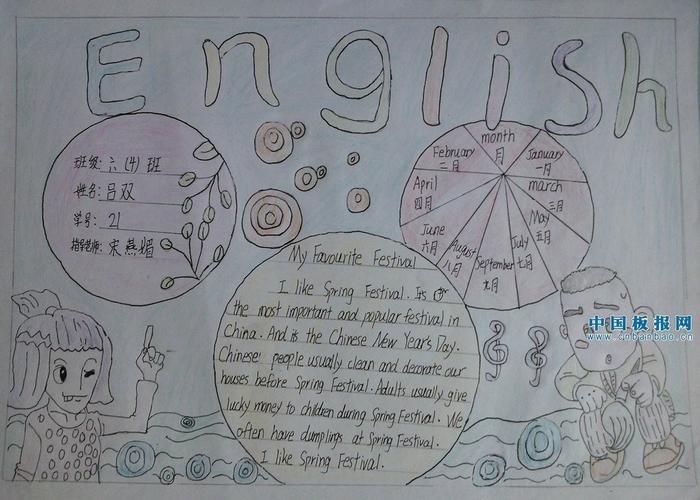 English
班级: 六 (4) 班
姓名: 吕双
学号: 21
指导老师: 宋燕媚
month
月
January
一月
February
二月
march
三月
April
四月
May
五月
June
六月
July
七月
August
八月
September
九月
My Favourite Festival
I like Spring Festival. Its
the most important and popular festival in
China. And is the Chinese New Year's Day.
Chinese people usually clean and decorate our
houses before Spring Festival. Adults usually give
lucky money to children during Spring Festival. We
often have dumplings at Spring Festival.
I like Spring Festival.
中国板报网
www.cnbanbao.cn